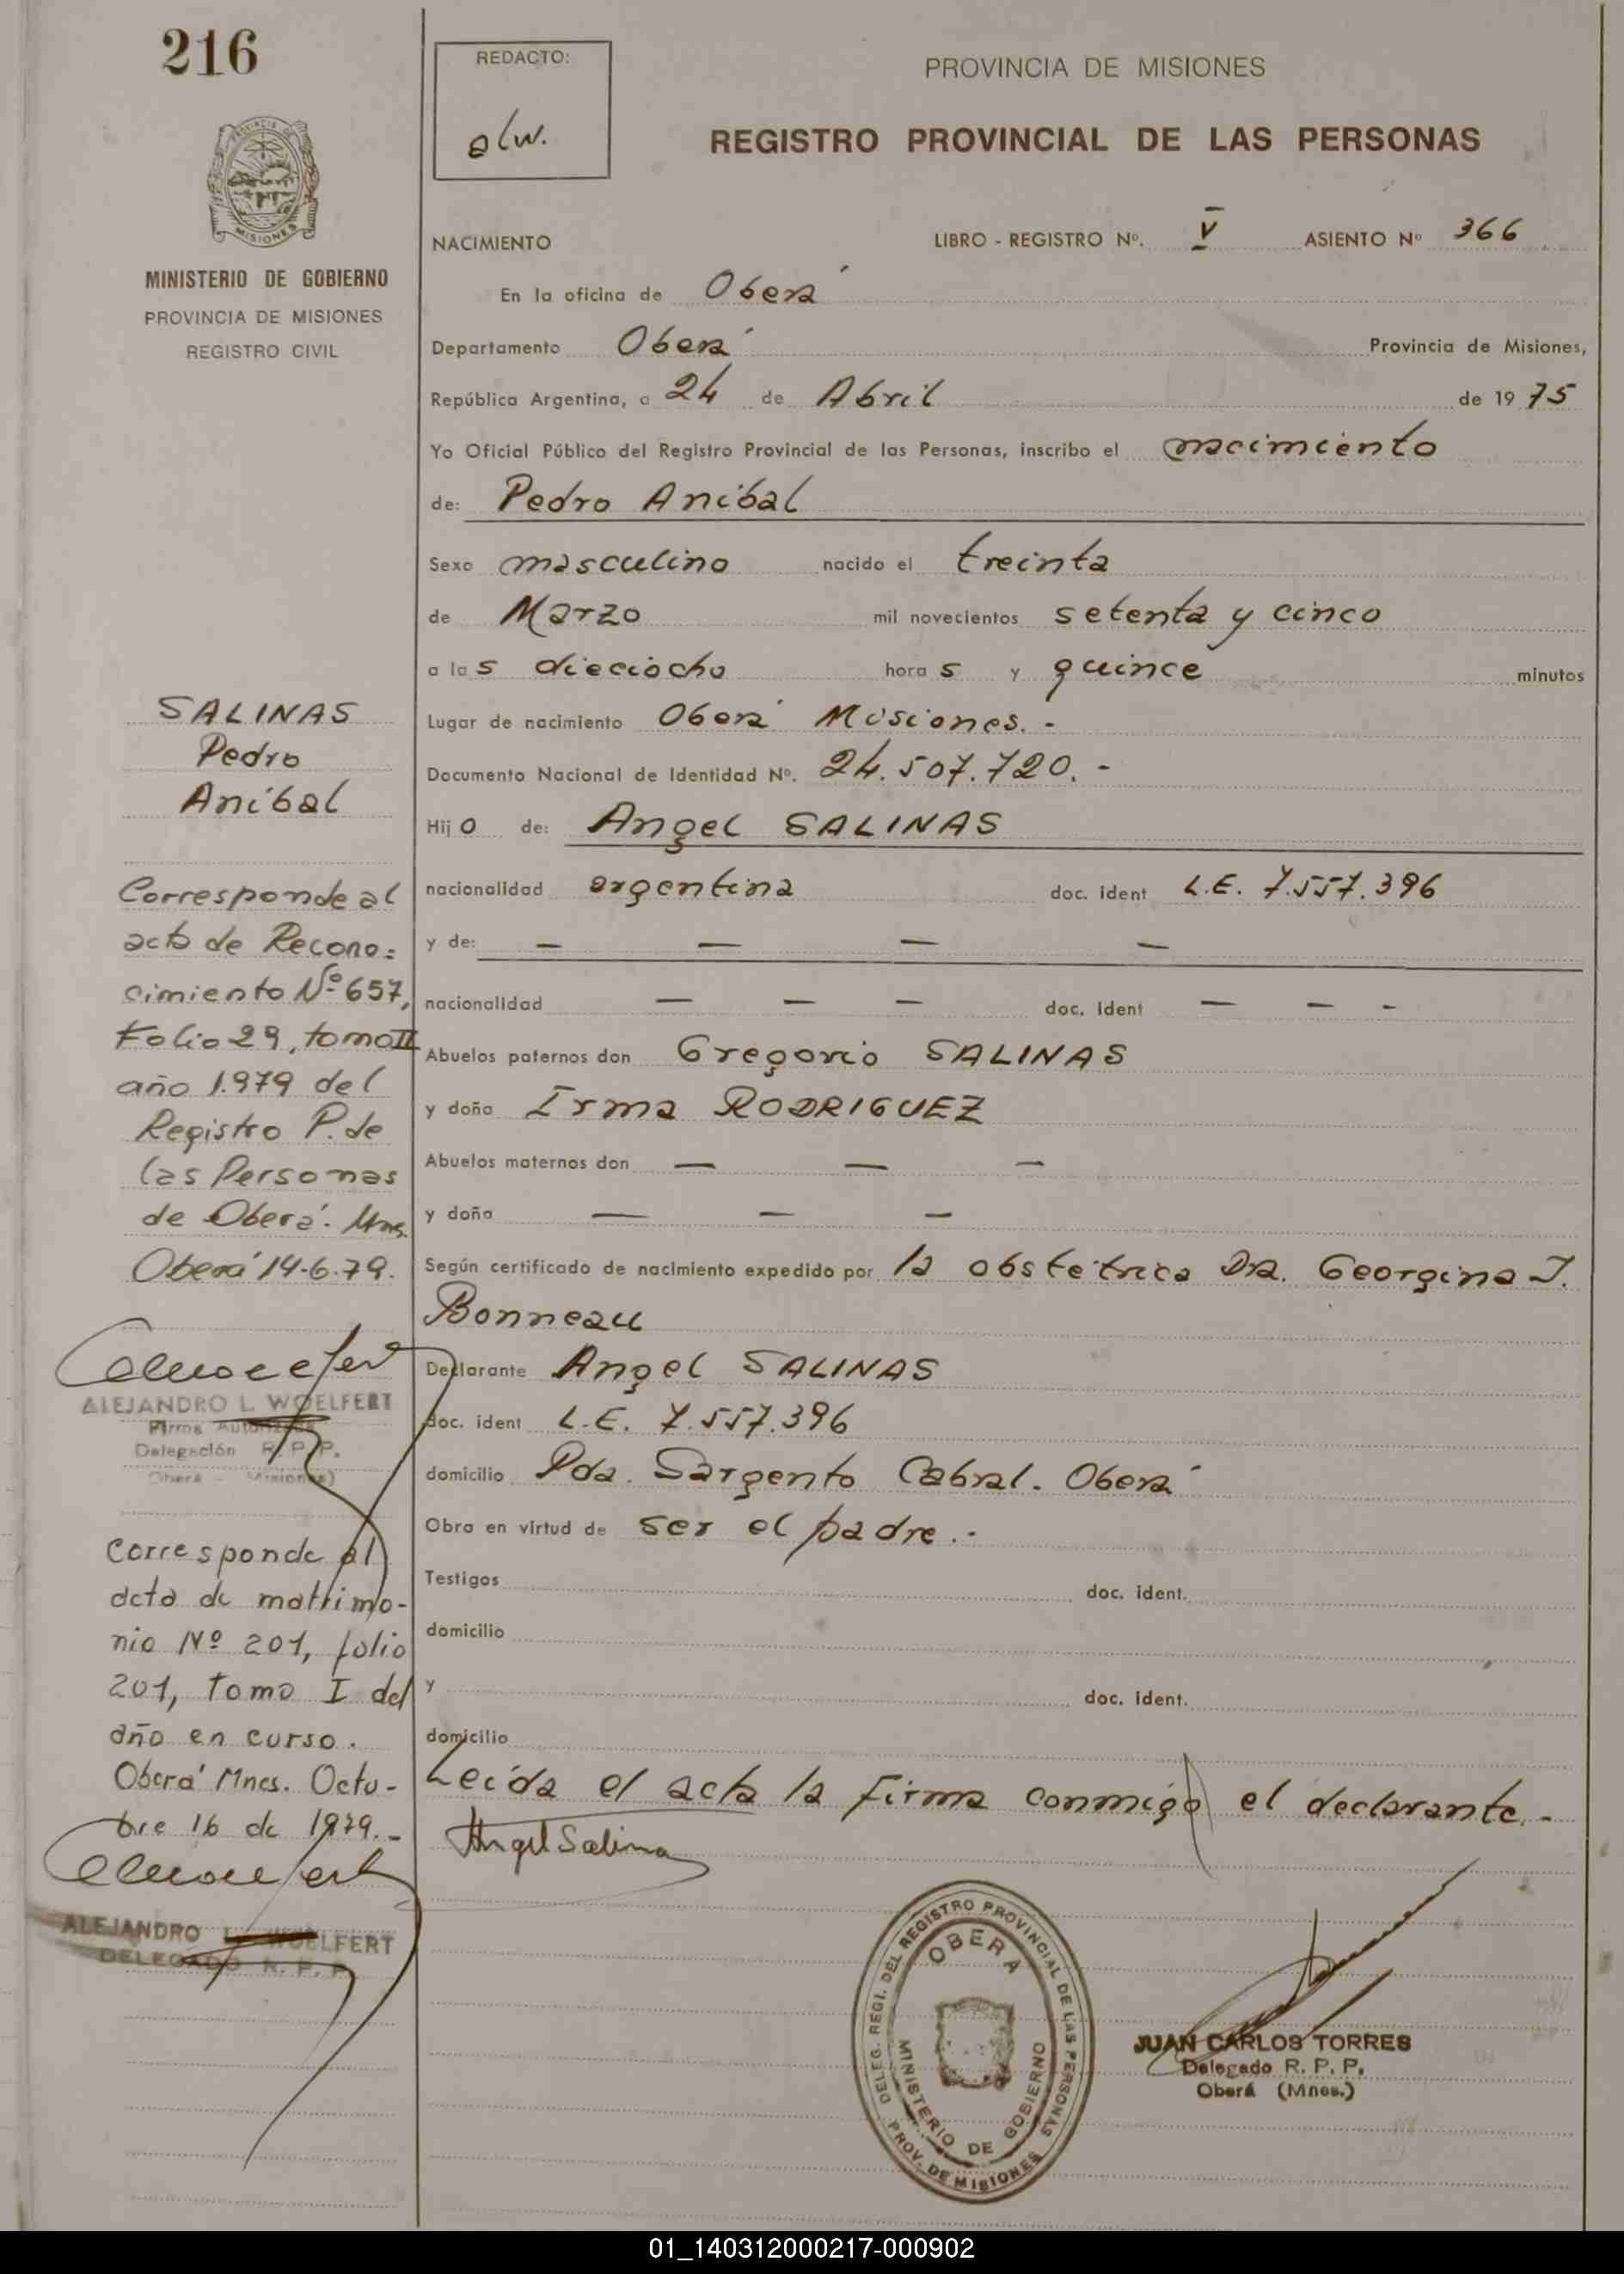 216
REDACTO:
alw.
PROVINCIA DE MISIONES
REGISTRO PROVINCIAL DE LAS PERSONAS
MISIONES
MINISTERIO DE GOBIERNO
PROVINCIA DE MISIONES
REGISTRO CIVIL
NACIMIENTO LIBRO - REGISTRO Nº. V ASIENTO Nº 366
En la oficina de Oberá
Departamento Oberá Provincia de Misiones,
República Argentina, a 24 de Abril de 19 75
Yo Oficial Público del Registro Provincial de las Personas, inscribo el nacimiento
de: Pedro Anibal
Sexo masculino nacido el treinta
de Marzo mil novecientos setenta y cinco
a las dieciocho horas y quince minutos
Lugar de nacimiento Oberá Misiones. -
Documento Nacional de Identidad Nº. 24.507.720. -
Hijo de: Angel SALINAS
nacionalidad argentina doc. ident L.E. 7.557.396
y de: — — — —
nacionalidad — — — doc. ident — — -
Abuelos paternos don Gregorio SALINAS
y doña Irma RODRIGUEZ
Abuelos maternos don — — —
y doña — — —
Según certificado de nacimiento expedido por la obstétrica Dra. Georgina J.
Bonneau
Declarante Angel SALINAS
doc. ident L.E. 7.557.396
domicilio Pda. Sargento Cabral. Oberá
Obra en virtud de ser el padre. -
Testigos doc. ident.
domicilio
y doc. ident.
domicilio
Leída el acta la firma conmigo el declarante. -
Angel Salina
SALINAS
Pedro
Aníbal
Corresponde al
acto de Recono=
cimiento Nº 657,
Folio 29, tomo II
año 1.979 del
Registro P. de
las Personas
de Oberá. Mns.
Oberá 14-6-79.
ALEJANDRO L. WOELFERT
Firma Autorizada
Delegación R. P. P.
Oberá - Misiones)
Corresponde al
acta de matrimo-
nio Nº 201, folio
201, Tomo I del
año en curso.
Oberá Mnes. Octu-
bre 16 de 1979.-
ALEJANDRO L. WOELFERT
DELEGADO R. P. P.
DELEG. REGI. DEL REGISTRO PROVINCIAL DE LAS PERSONAS
OBERA
MINISTERIO DE GOBIERNO
PROV. DE MISIONES
JUAN CARLOS TORRES
Delegado R. P. P.
Oberá (Mnes.)
01_140312000217-000902